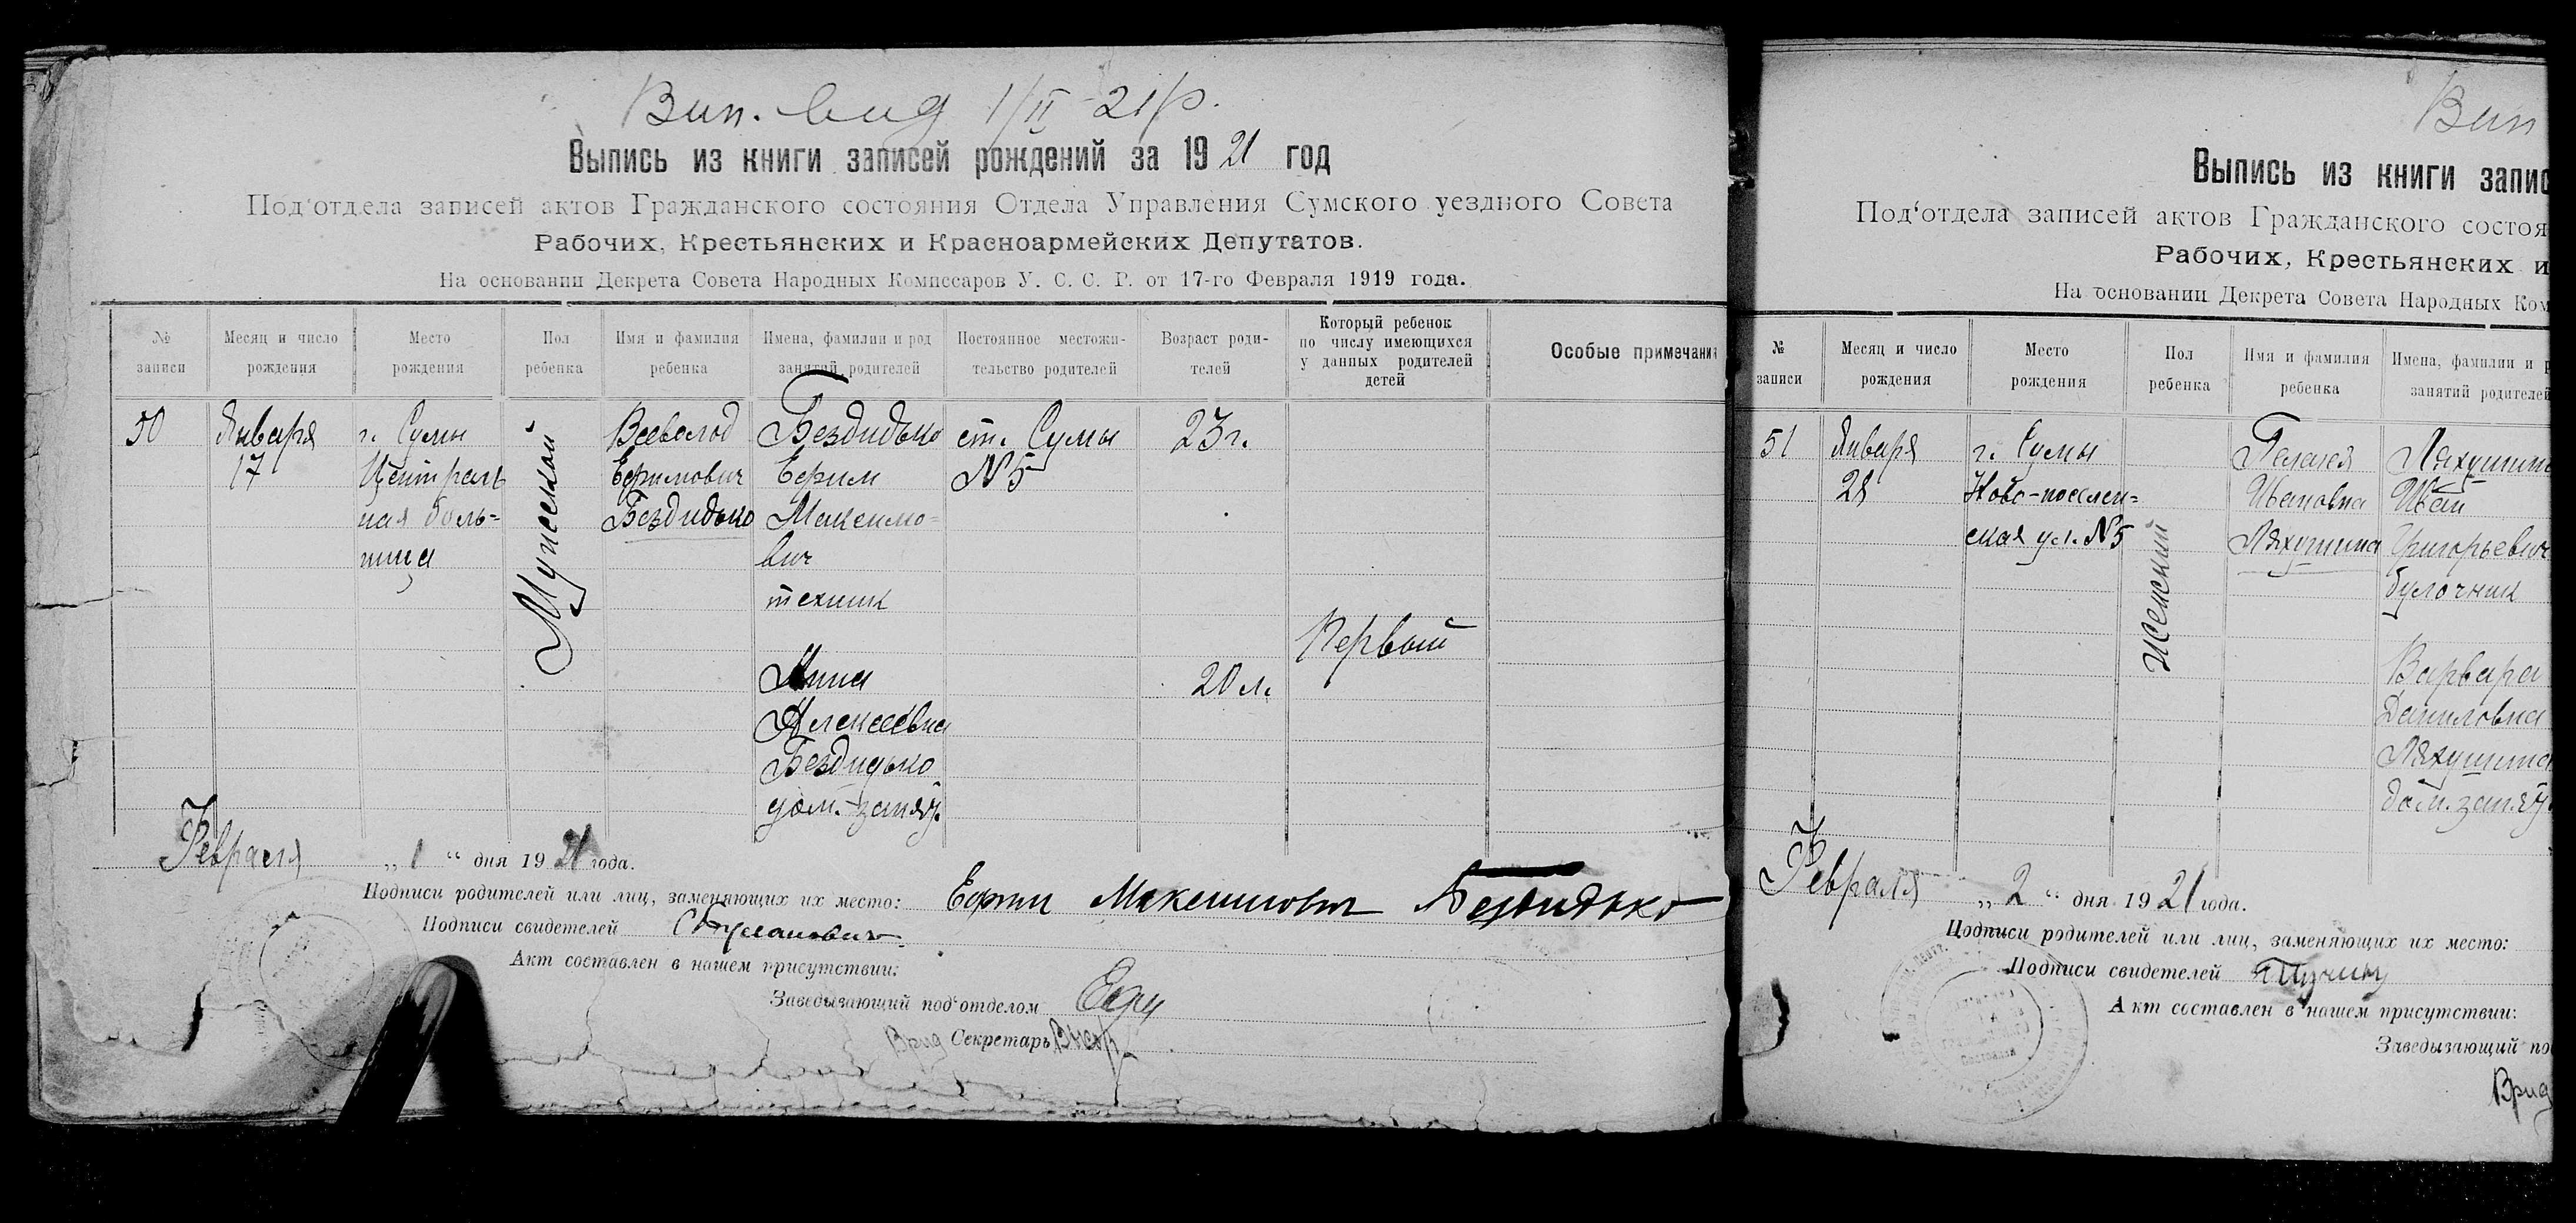 Вип. вид 1/II-21р.
Выпись из книги записей рождений за 1921 год
Под‘отдела записей актов Гражданского состояния Отдела Управления Сумского уездного Совета
Рабочих, Крестьянских и Красноармейских Депутатов.
На основании Декрета Совета Народных Комиссаров У. С. С. Р. от 17-го Февраля 1919 года.
№ записи
Месяц и число рождения
Место рождения
Пол ребенка
Имя и фамилия ребенка
Имена, фамилии и род занятий родителей
Постоянное местожи-
тельство родителей
Возраст роди-
телей
Который ребенок
по числу имеющихся
у данных родителей
детей
Особые примечания
50
Января
17
г. Сумы
Централь
ная боль-
ница
Мужеской
Всеволод
Ефимович
Бездидько
Бездидько
Ефим
Максимо-
вич
техник
Анна
Алексеевна
Бездидько
дом.-заняț.
ст. Сумы
N5
23г.
20 л.
Первый
Февраля „1“ дня 1921 года.
Подписи родителей или лиц, заменяющих их место: Ефим Максимович Бездидько
Подписи свидетелей
Акт составлен в нашем присутствии:
Заведызающий под‘отделом
Врид Секретарь
Вип
Выпись из книги запис
Под‘отдела записей актов Гражданского состоя
Рабочих, Крестьянских и
На основании Декрета Совета Народных Ком
№ записи
Месяц и число рождения
Место рождения
Пол ребенка
Имя и фамилия ребенка
Имена, фамилии и р
занятий родителей
51
Января
28
г. Сумы
Ново-поселен=
ская ул. N5
Женский
Пелагея
Ивановна
Ляхушина
Ляхушин
Иван
Григорьевич
булочник
Варвара
Даниловна
Ляхушина
дом. заняț.
Февраля „2“ дня 1921 года.
Подписи родителей или лиц, заменяющих их место:
Подписи свидетелей
Акт составлен в нашем присутствии:
Заведызающий по
Врид